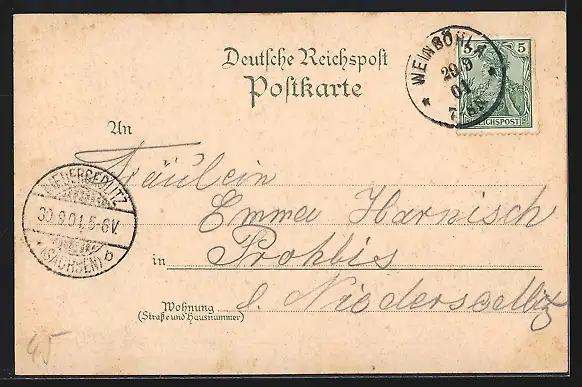 Deutsche Reichspost
Postkarte
WEINBÖHLA
29 9
01
7-8N
5
REICHSPOST
An
Fräulein
Emma Harnisch
in Prohlis
b. Niedersedlitz
Wohnung
(Straße und Hausnummer)
NIEDERSEDLITZ
30.9.01.5-6V.
*(SACHSEN) b
45